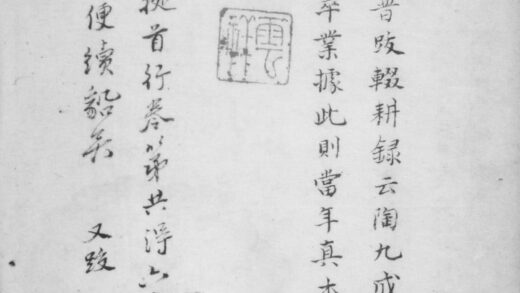 普跋輟耕録云陶九成
卒業據此則當年真本
首行卷第共淂六
便續貂矣 又跋